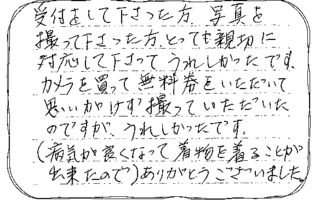 受付をして下さった方、写真を
撮って下さった方、とっても親切に
対応して下さって、うれしかったです。
カメラを買って無料券をいただいて
思いがけず撮っていただいた
のですが、うれしかったです。
(病気が良くなって着物を着ることが
出来たので)ありがとうございました。